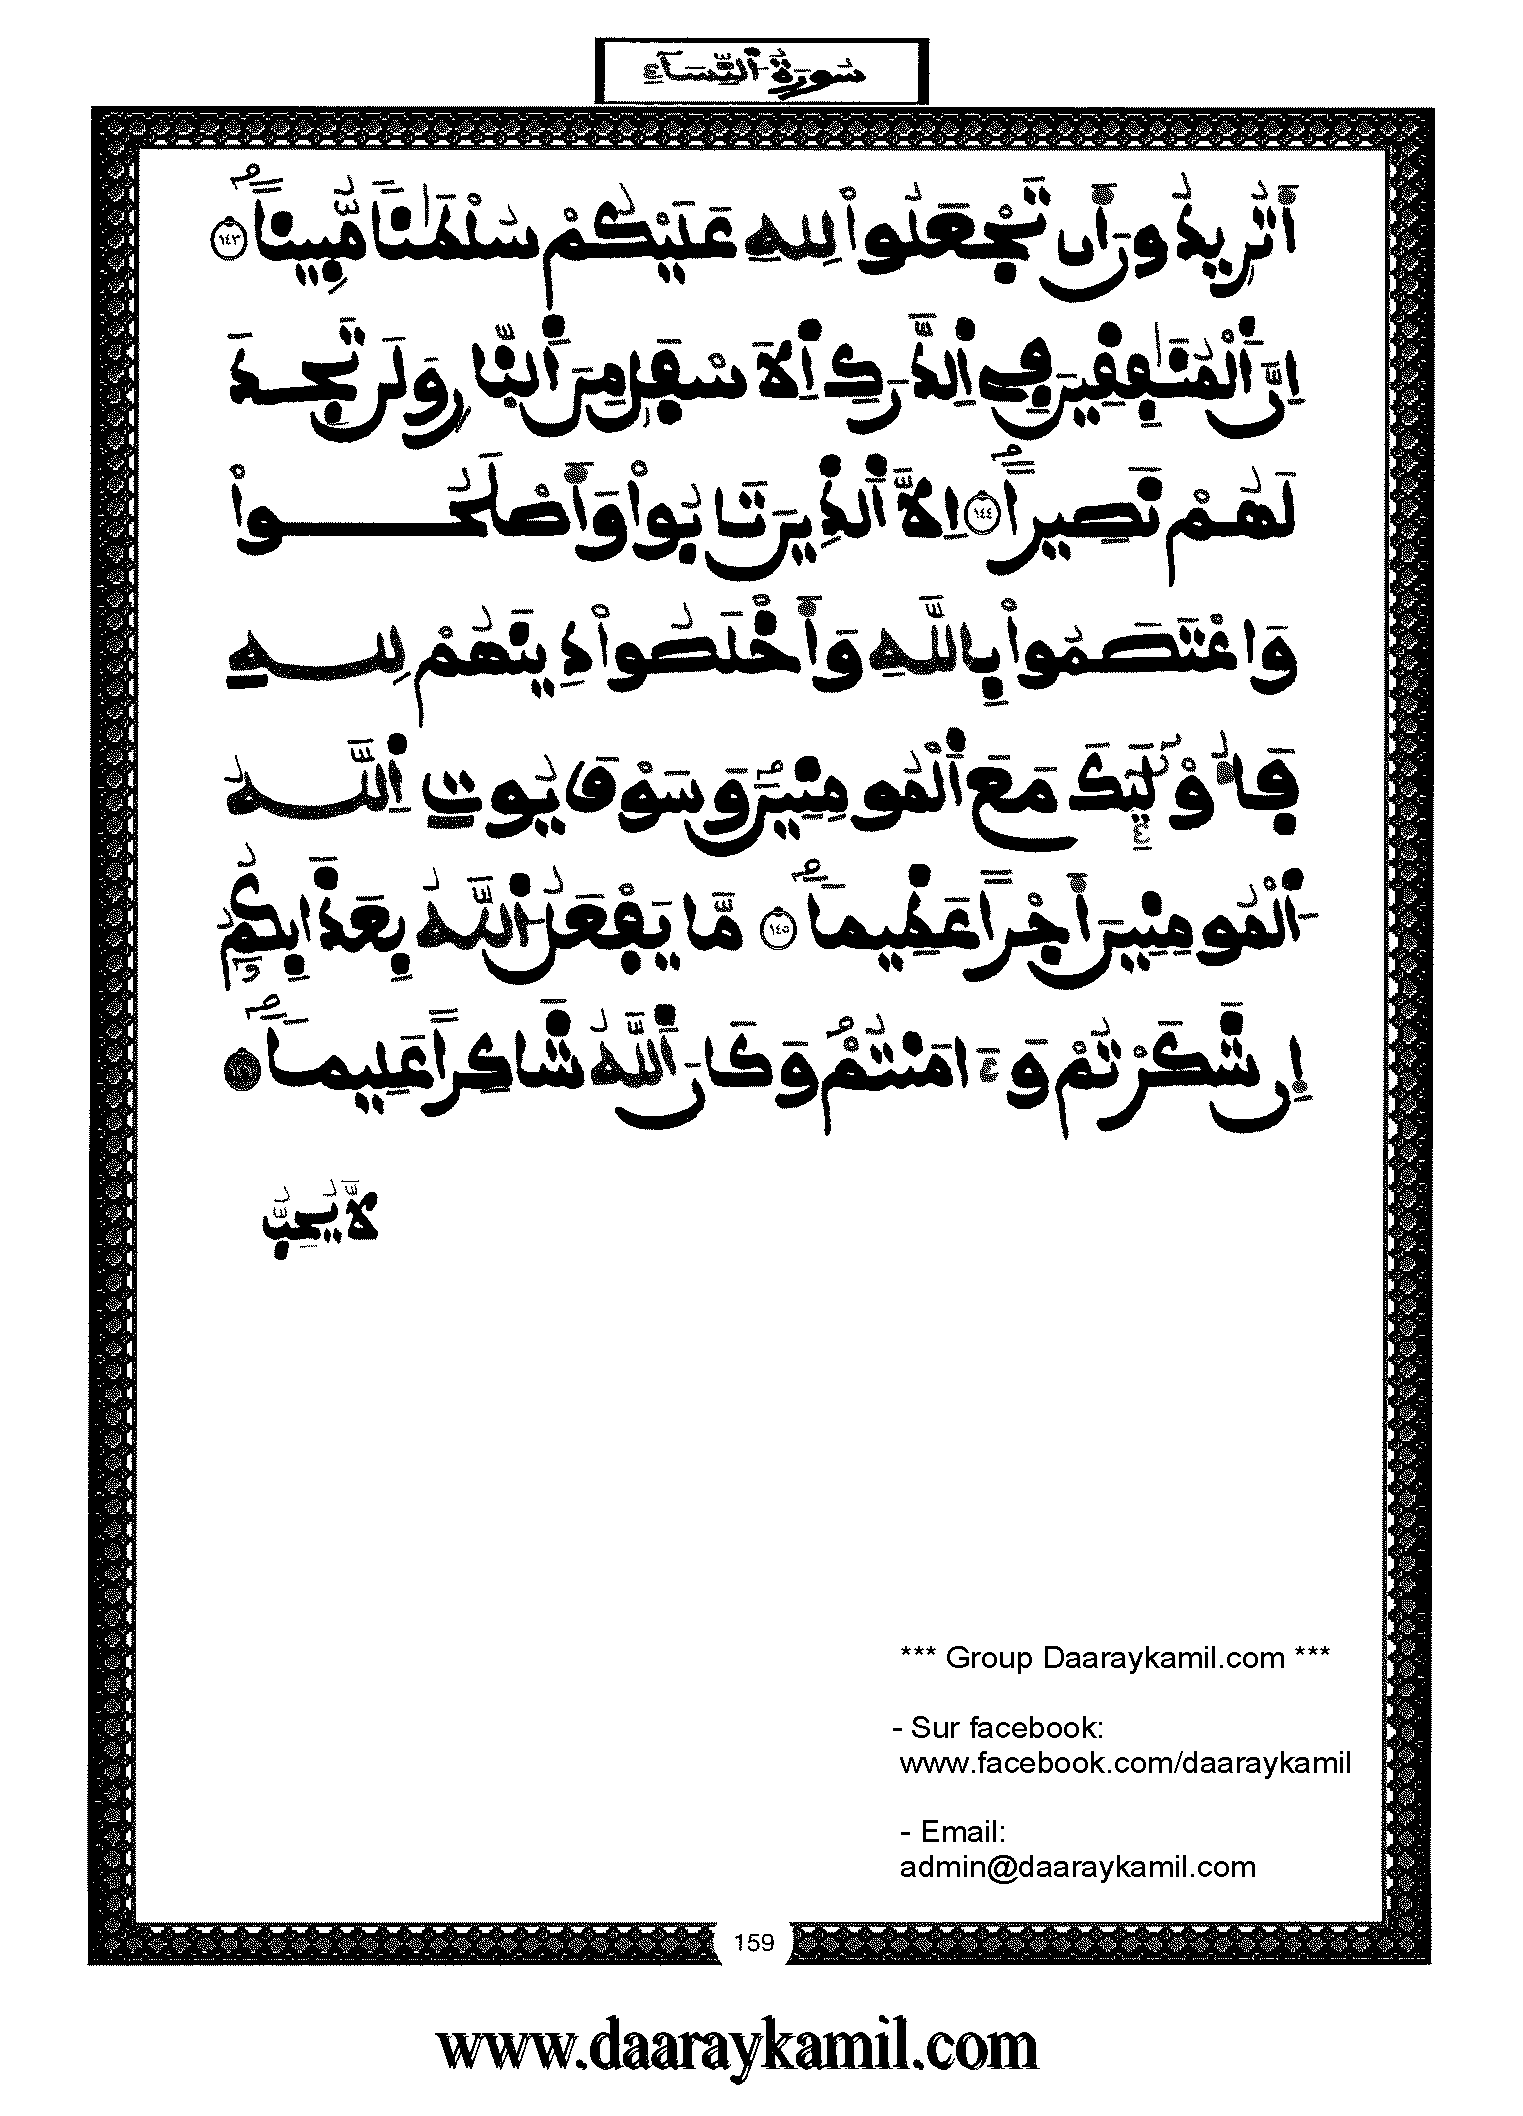 سُورَةُ اُ۬لنِّسَآءِ
اَتُرِيدُونَ أَن تَجْعَلُواْ لِلهِ عَلَيْكُمْ سُلْطَٰناٗ مُّبِيناًۖ ١٤٣
اِنَّ اَ۬لْمُنَٰفِقِينَ فِے اِ۬لدَّرَكِ اِ۬لَاسْفَلِ مِنَ اَ۬لنّ۪ارِ وَلَن تَجِدَ
لَهُمْ نَصِيراًۖ ١٤٤ اِلَّا اَ۬لذِينَ تَابُواْ وَأَصْلَحُواْ
وَاعْتَصَمُواْ بِاللَّهِ وَأَخْلَصُواْ دِينَهُمْ لِلهِ
فَأُوْلَٰٓئِكَ مَعَ اَ۬لْمُومِنِينَۖ وَسَوْفَ يُوتِ اِ۬للَّهُ
اُ۬لْمُومِنِينَ أَجْراً عَظِيماٗۖ ١٤٥ مَّا يَفْعَلُ اُ۬للَّهُ بِعَذَابِكُمُۥٓ
إِن شَكَرْتُمْ وَءَامَنتُمْۖ وَكَانَ اَ۬للَّهُ شَاكِراً عَلِيماٗۖ
لَّا يُحِبُّ
*** Group Daaraykamil.com ***
- Sur facebook:
www.facebook.com/daaraykamil
- Email:
admin@daaraykamil.com
159
www.daaraykamil.com